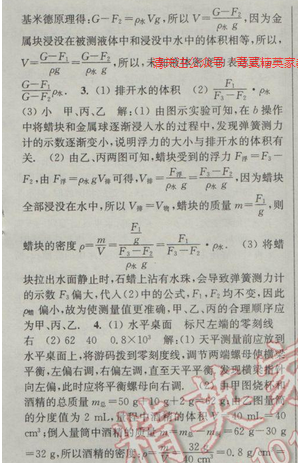 基米德原理得：G－F₂＝ρ水Vg，所以V＝(G－F₂)/(ρ水g)，因为金
属块浸没在被测液体中和浸没中水中的体积相等，所以，
V＝(G－F₁)/(ρg)＝(G－F₂)/(ρ水g)，所以，
(G－F₁)/(G－F₂)ρ水． 3．(1)排开水的体积 (2)F₁/(F₃－F₂)·ρ水
(3)小 甲、丙、乙 解：(1)由图示实验可知，在b操作
中将蜡块和金属球逐渐浸入水的过程中，发现弹簧测力
计的示数逐渐变小，说明浮力的大小与排开水的体积有
关． (2)由乙、丙两图可知，蜡块受到的浮力F浮＝F₃－
F₂，由F浮＝ρ水gV排可得，V排＝F浮/(ρ水g)＝(F₃－F₂)/(ρ水g)，因为蜡块
全部浸没在水中，所以V排＝V物，蜡块的质量m＝F₁/g，则
蜡块的密度ρ＝m/V＝(F₁/g)/((F₃－F₂)/(ρ水g))＝F₁/(F₃－F₂)·ρ水． (3)将蜡
块拉出水面静止时，石蜡上沾有水珠，会导致弹簧测力计
的示数F₃偏大，代人(2)中的公式，F₁、F₂均不变，因此
ρ蜡偏小，故为使测量值更准确，甲、乙、丙的合理顺序应
为甲、丙、乙． 4．(1)水平桌面 标尺左端的零刻线
右 (2)62 40 0.8×10³ 解：(1)天平测量前应放到
水平桌面上，将游码拨到零刻度线，调节两端螺母使横
平衡，左偏右调，右偏左调，直至天平平
向左偏，此时应将平衡螺母向右调．
酒精的总质量m总＝50 g＋ g＋2 g＝62 g；由乙图量筒
的分度值为2 mL，量筒中酒精的体积V＝40 mL＝40
cm³；倒人量筒中酒精的质量m酒＝m总－m ＝62 g－30 g
＝32 g，所以酒精的密度 ＝32 g/40 cm³＝0.8 g/cm³＝